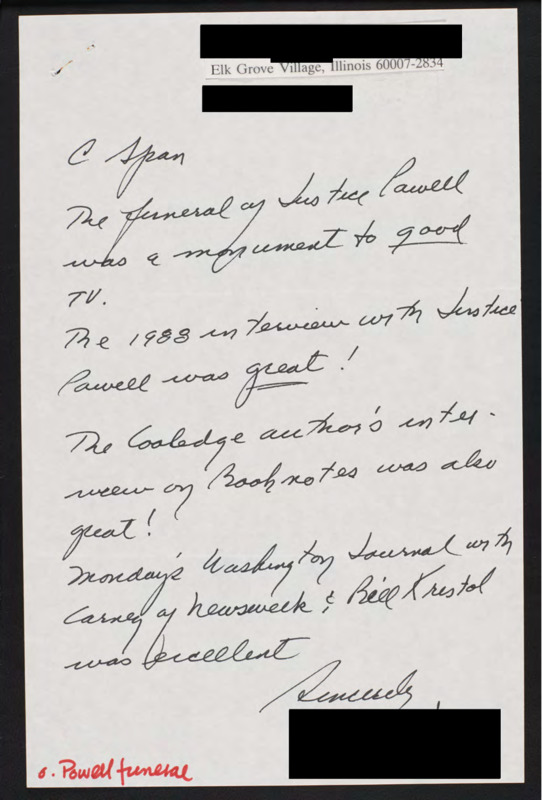 Elk Grove Village, Illinois 60007-2834
C Span
The funeral of Justice Powell
was a monument to good
TV.
The 1983 interview with Justice
Powell was great!
The Cooledge author's inter-
view on Booknotes was also
great!
Monday's Washington Journal with
Carney of Newsweek & Bill Kristol
was excellent
Sincerely,
o. Powell funeral